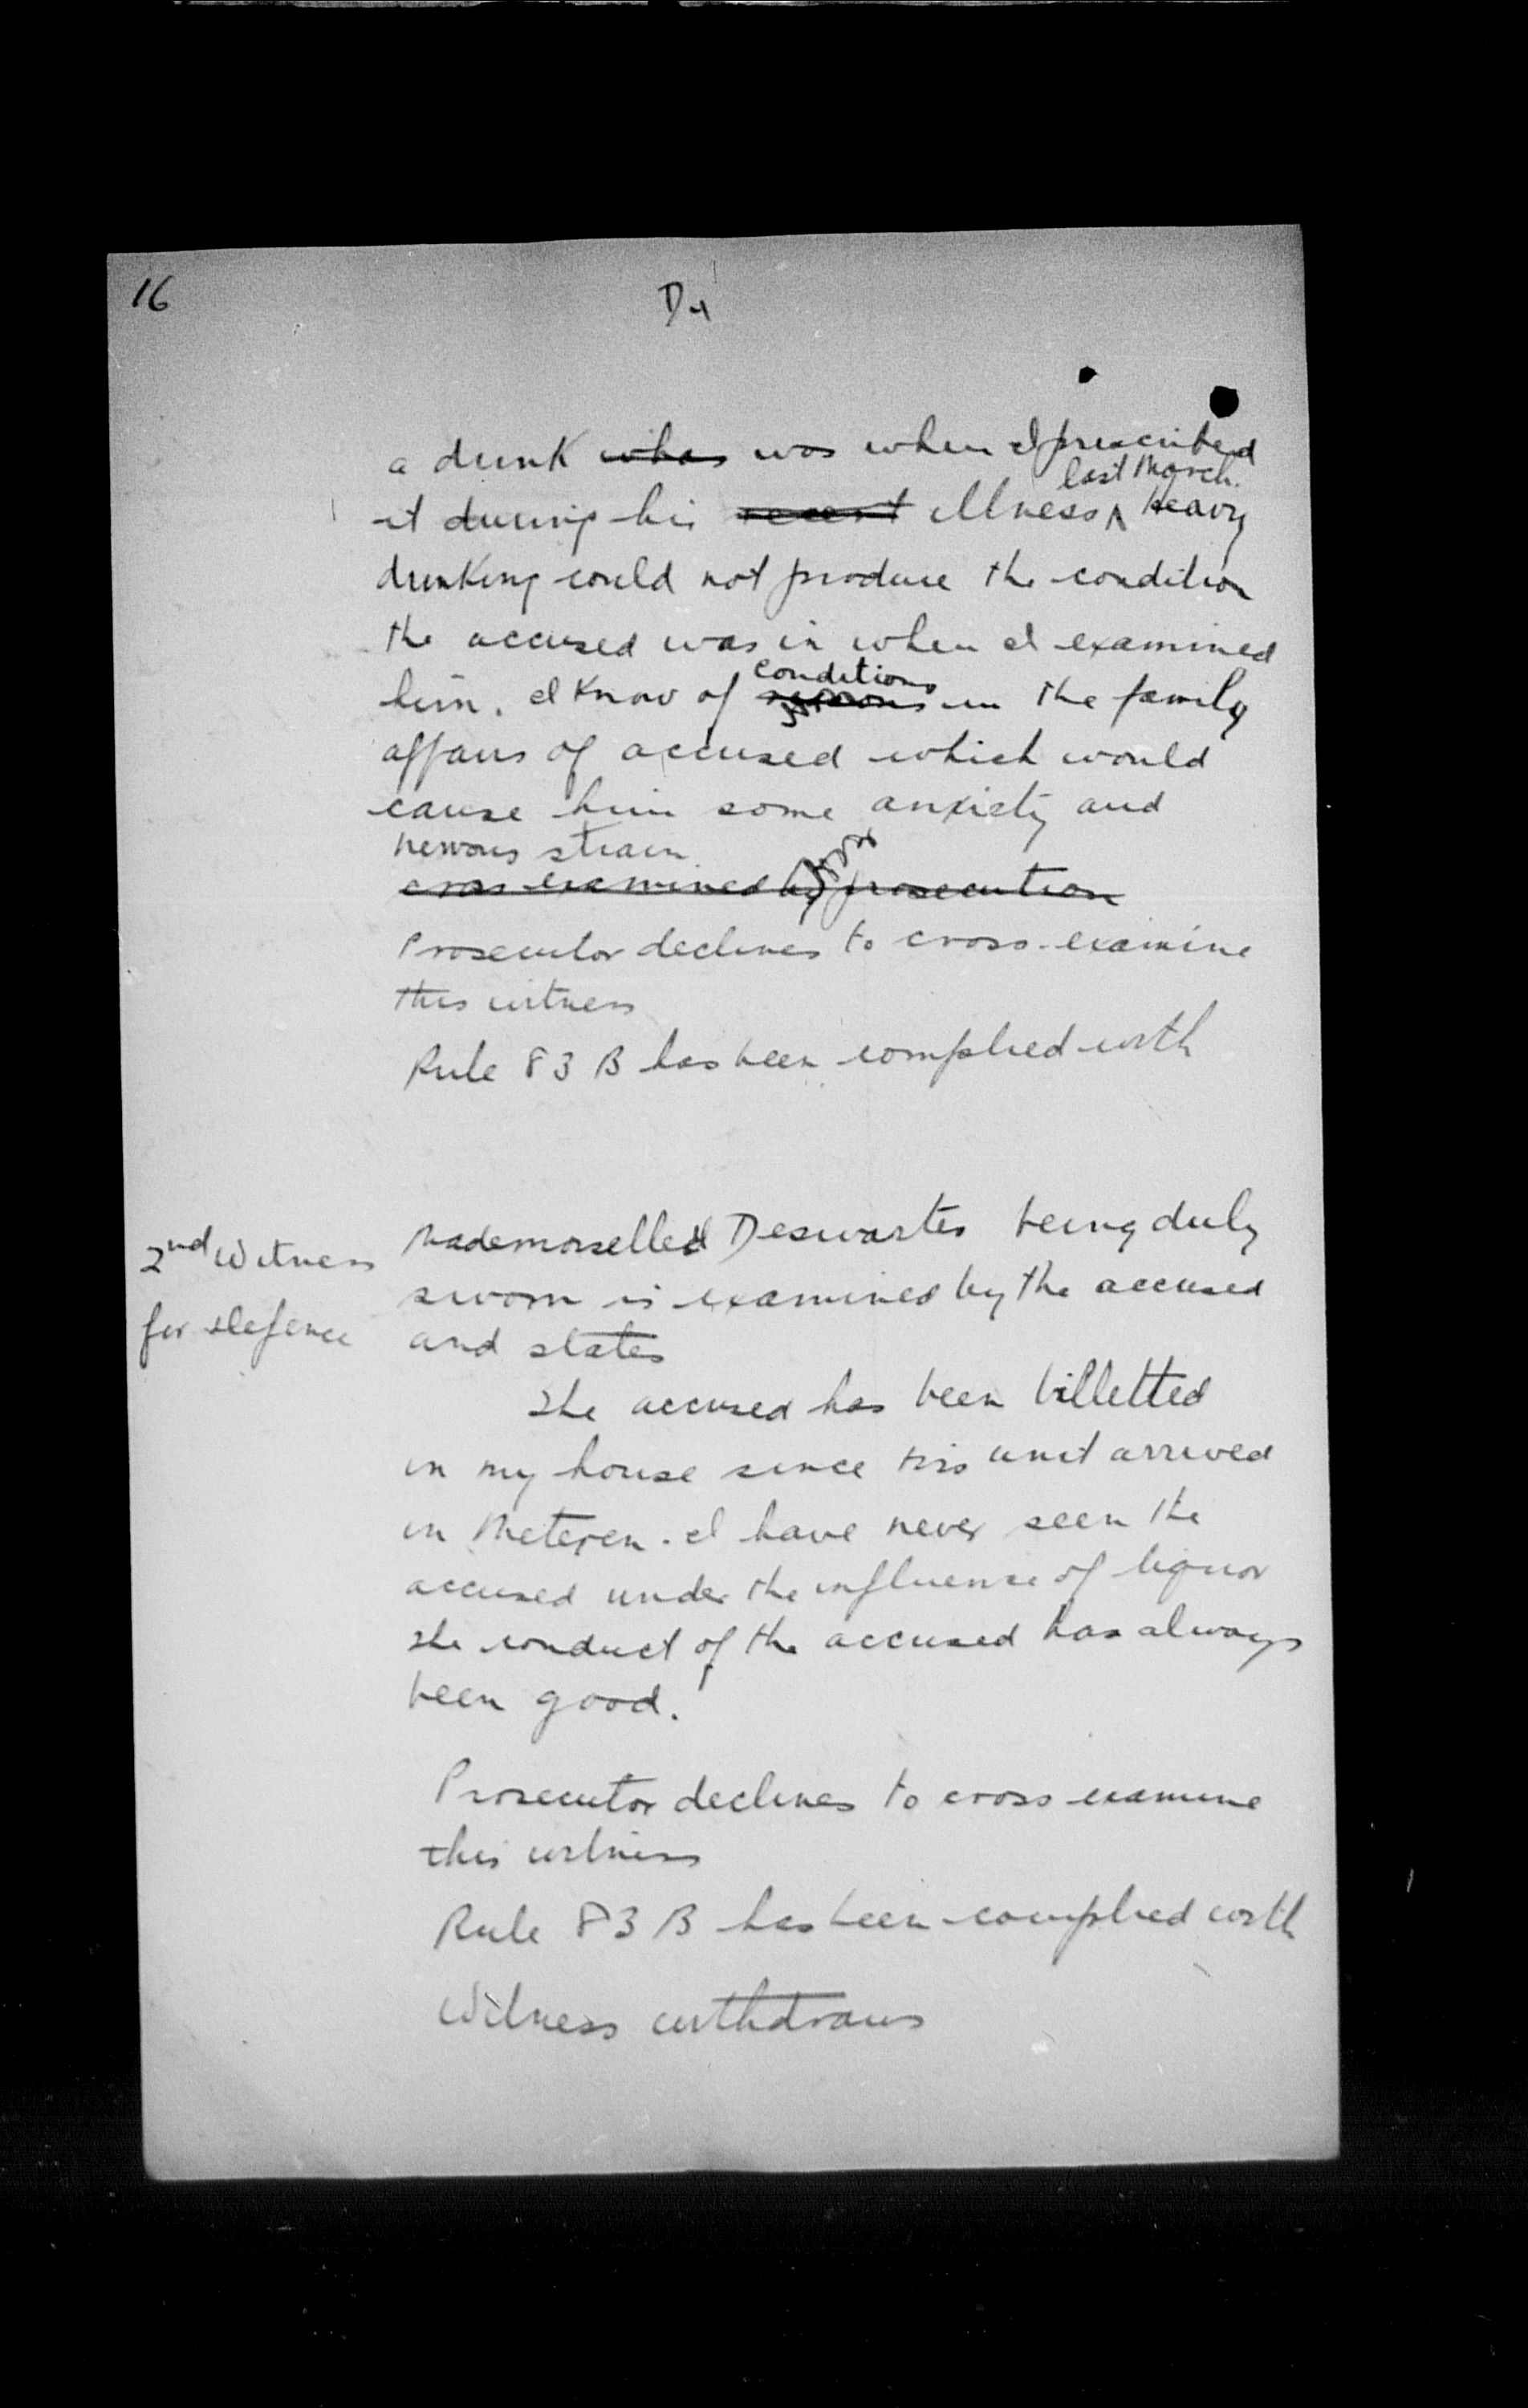 16
D4
a drink whas was when I prescribed
last March.
it during his recent illness ^ heavy
drinking could not produce the condition
the accused was in when I examined
conditions
him. I know of reasons in the family
affairs of accused which would
cause him some anxiety and
nervous strain
cross examined by prosecution
Prosecutor declines to cross-examine
this witness
Rule 83 B has been complied with
2nd Witness
for defence
Mademoiselle Deswartes being duly
sworn is examined by the accused
and states
The accused has been billetted
in my house since his unit arrived
in Meteren. I have never seen the
accused under the influence of liquor
The conduct of the accused has always
been good.
Prosecutor declines to cross examine
this witness
Rule 83 B has been complied with
Witness withdraws